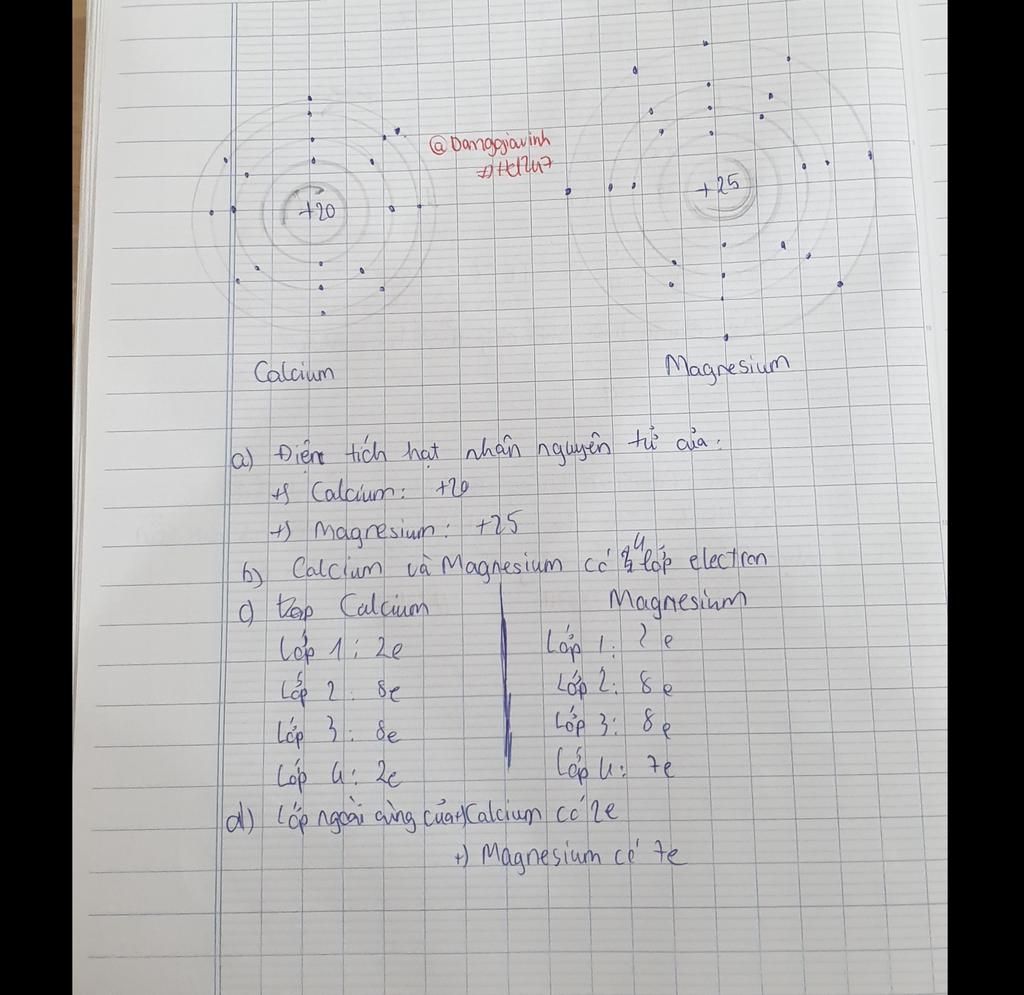 @Danggiavinh
+20
+25
Calcium
Magnesium
a) Điện tích hạt nhân nguyên tử của:
+) Calcium: +20
+) Magnesium: +25
b) Calcium và Magnesium có 4 lớp electron
c) Calcium
Magnesium
Lớp 1: 2e
Lớp 1: 2e
Lớp 2: 8e
Lớp 2: 8e
Lớp 3: 8e
Lớp 3: 8e
Lớp 4: 2e
Lớp 4: 7e
d) Lớp ngoài cùng của +) Calcium có 2e
+) Magnesium có 7e